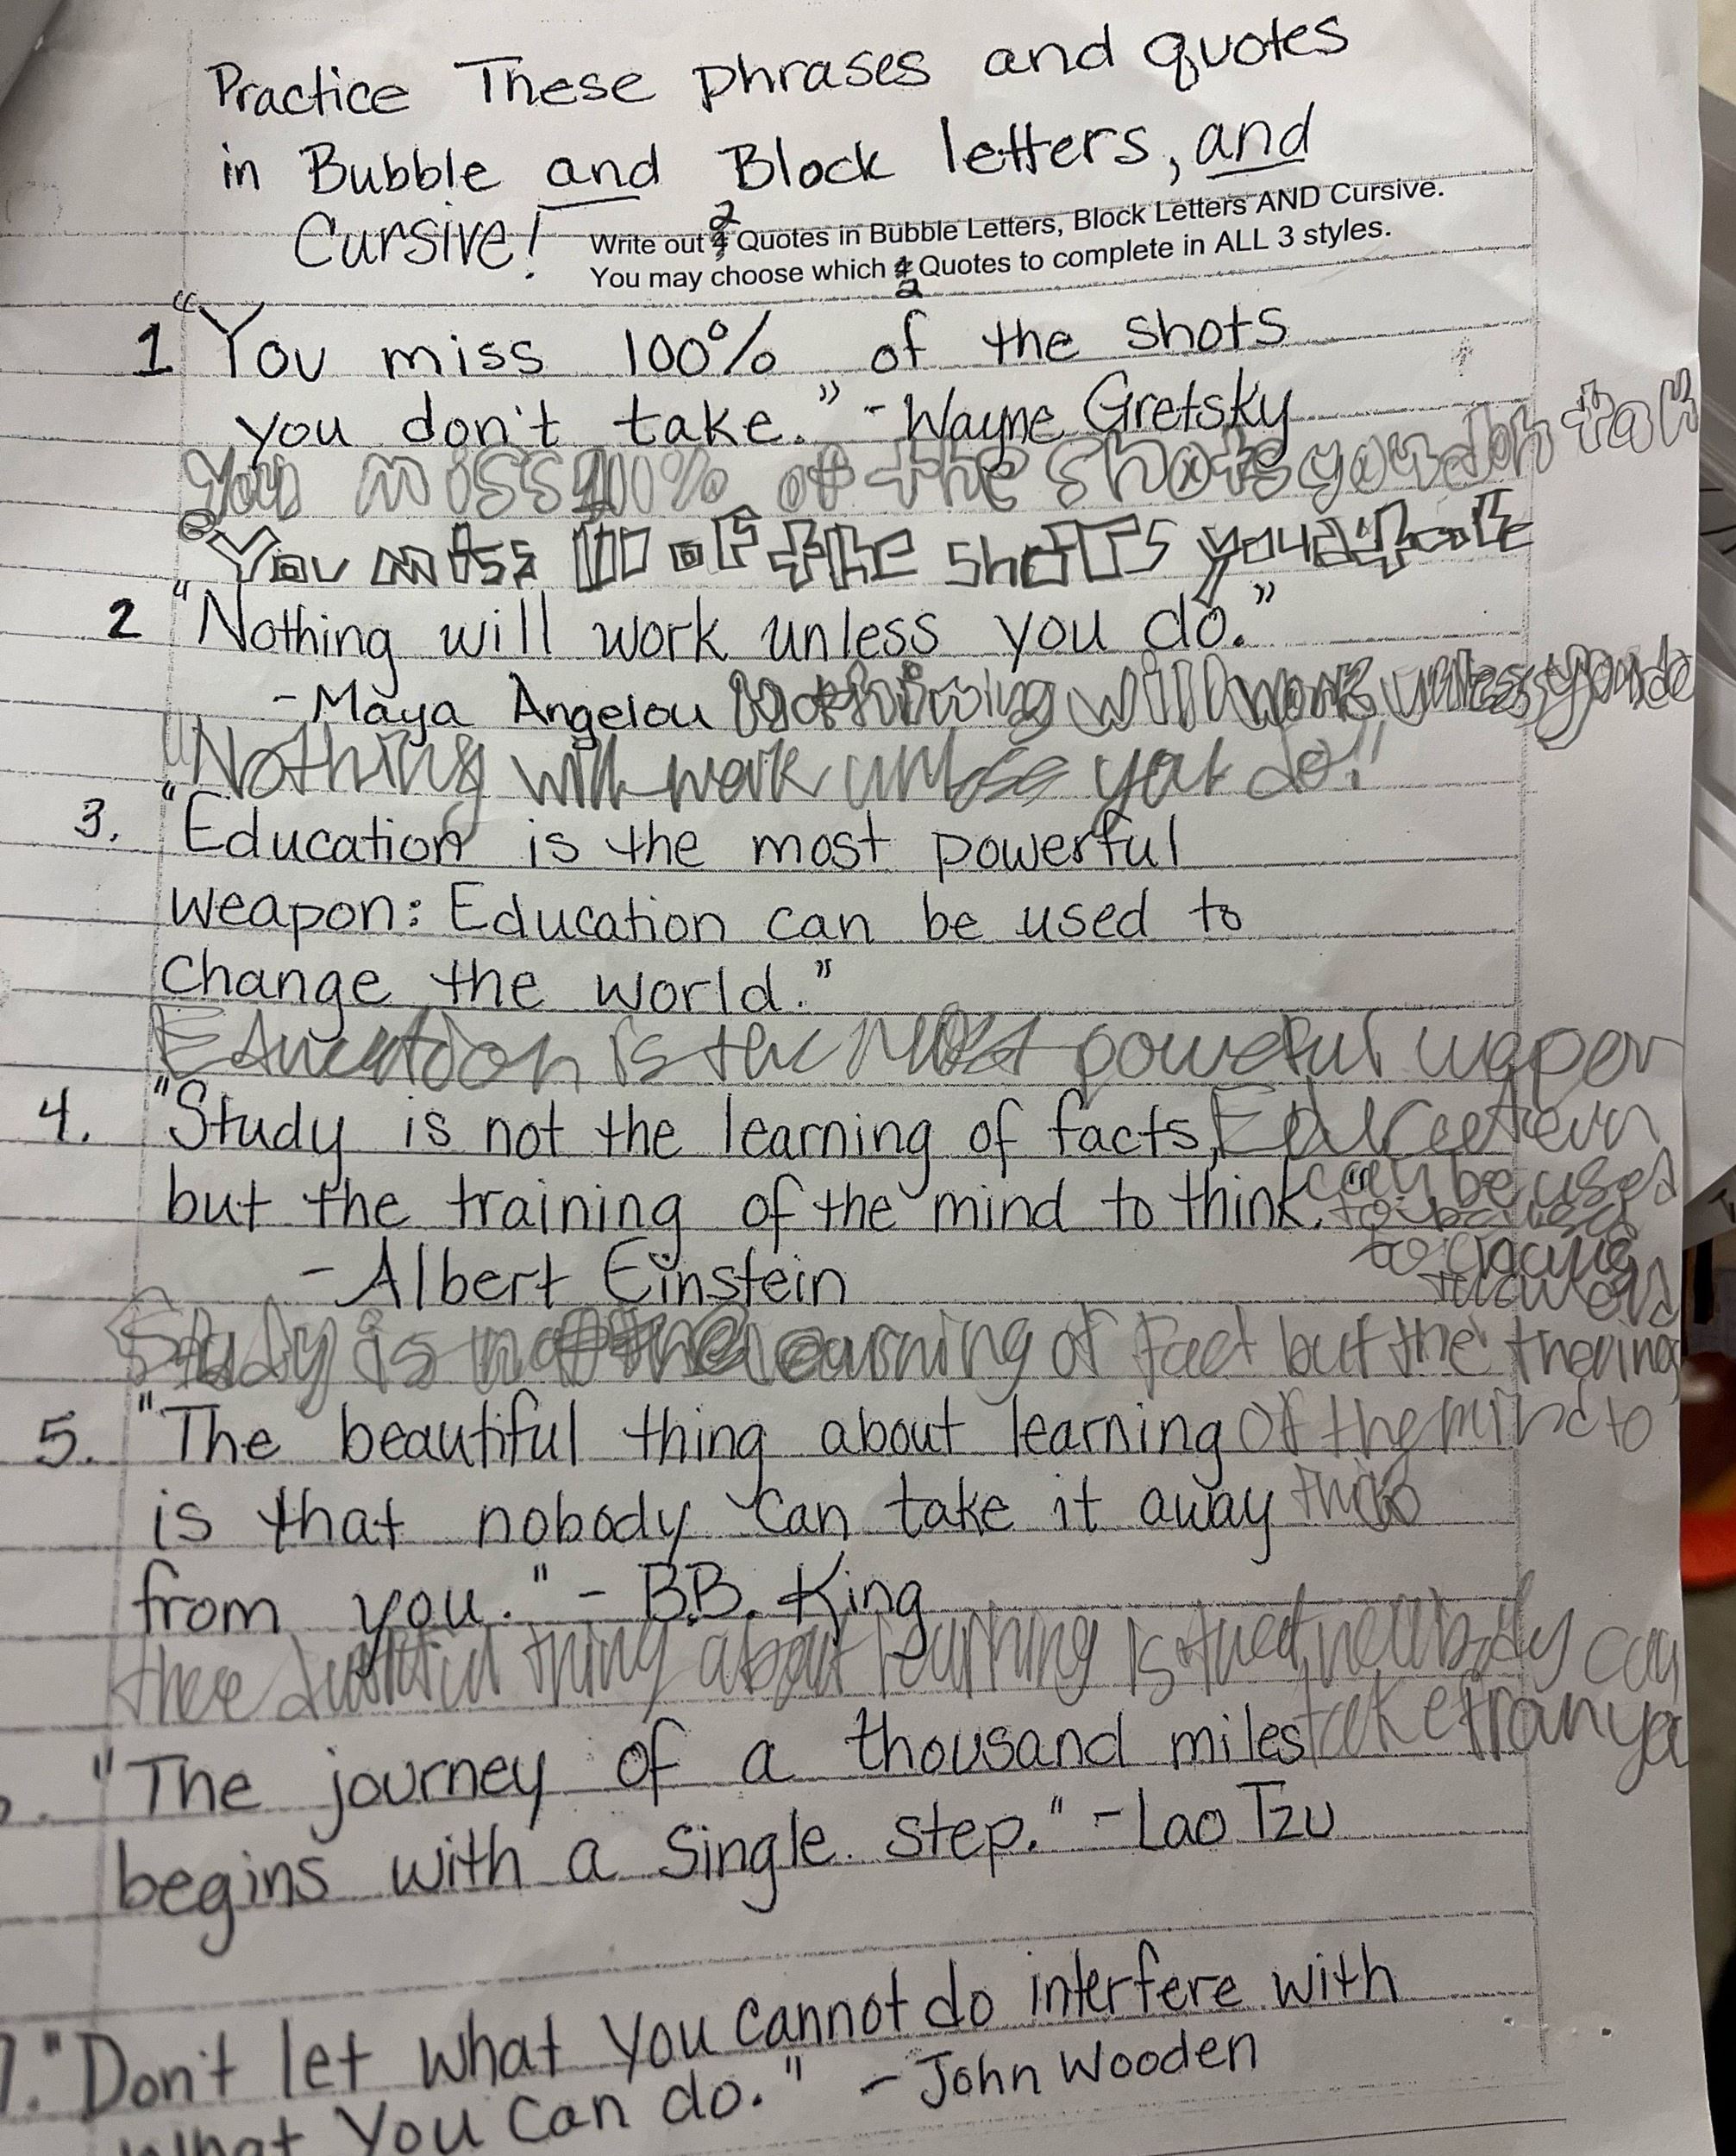 Practice These phrases and quotes
in Bubble and Block letters, and
Cursive!
Write out 2 Quotes in Bubble Letters, Block Letters AND Cursive.
You may choose which 2 Quotes to complete in ALL 3 styles.
1. "You miss 100% of the shots
you don't take." - Wayne Gretsky
You miss 100% of the shots you don tak
You miss 100 of the shots you
2 "Nothing will work unless you do."
- Maya Angelou Nothing will work unless you do
"Nothing will work unless you do."
3. "Education is the most powerful
weapon: Education can be used to
change the world."
Education is the most powerful wepon
4. "Study is not the learning of facts,
but the training of the mind to think."
can be used
- Albert Einstein
Study is not the learning of fact but the
5. "The beautiful thing about learning of the mind to
is that nobody can take it away
from you." - B.B. King
thing about learning is can
"The journey of a thousand miles take
begins with a single step." - Lao Tzu
7. "Don't let what you cannot do interfere with
what you can do." - John Wooden